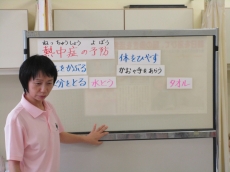 ねっちゅうしょう よぼう
熱中症の予防
をかぶる
体をひやす
かおや手をあらう
分をとる
水とう
タオル